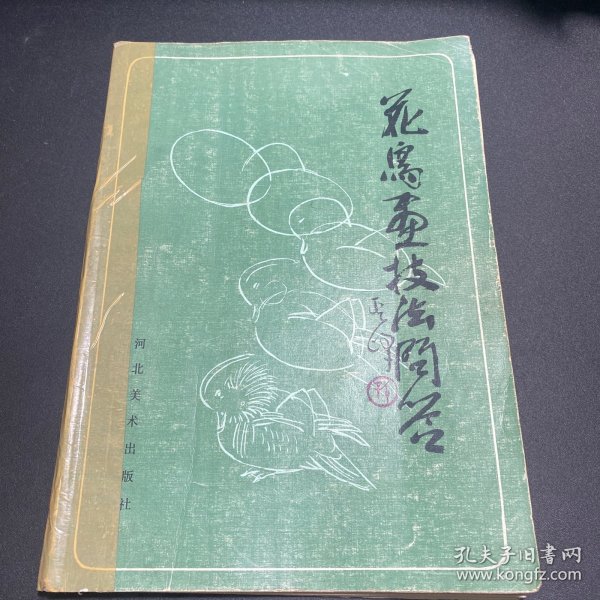 花鸟画技法問答
河北美术出版社
孔夫子旧書网
www.kongfz.com